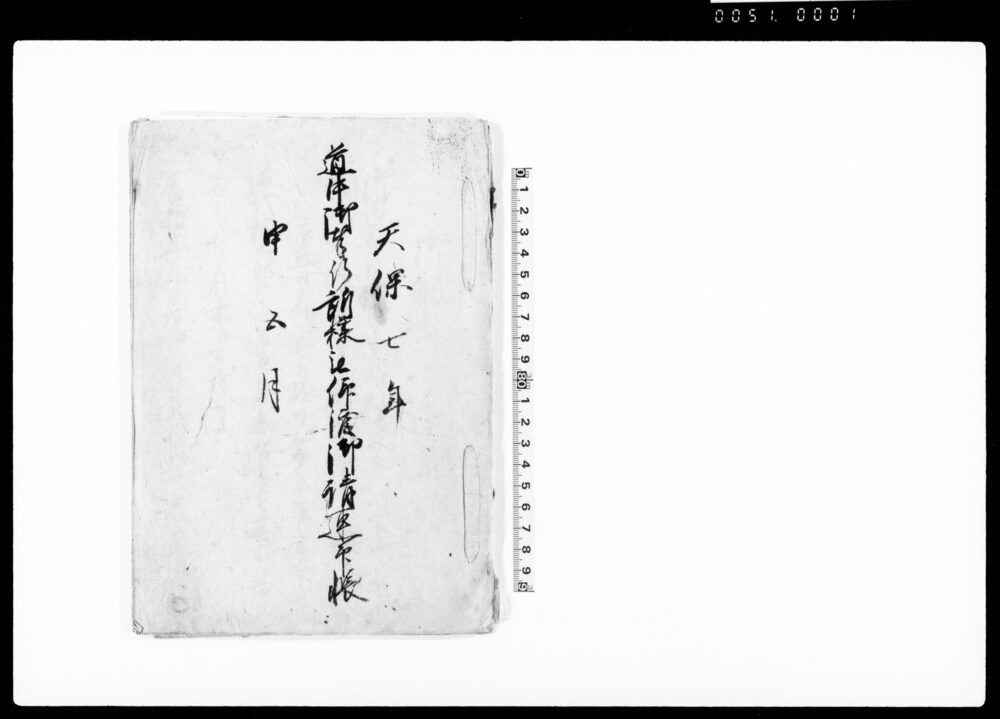 0051. 0001
天保七年
道中御奉行所様被仰渡御請連印帳
申五月
0 1 2 3 4 5 6 7 8 9
1 2 3 4 5 6 7 8 9